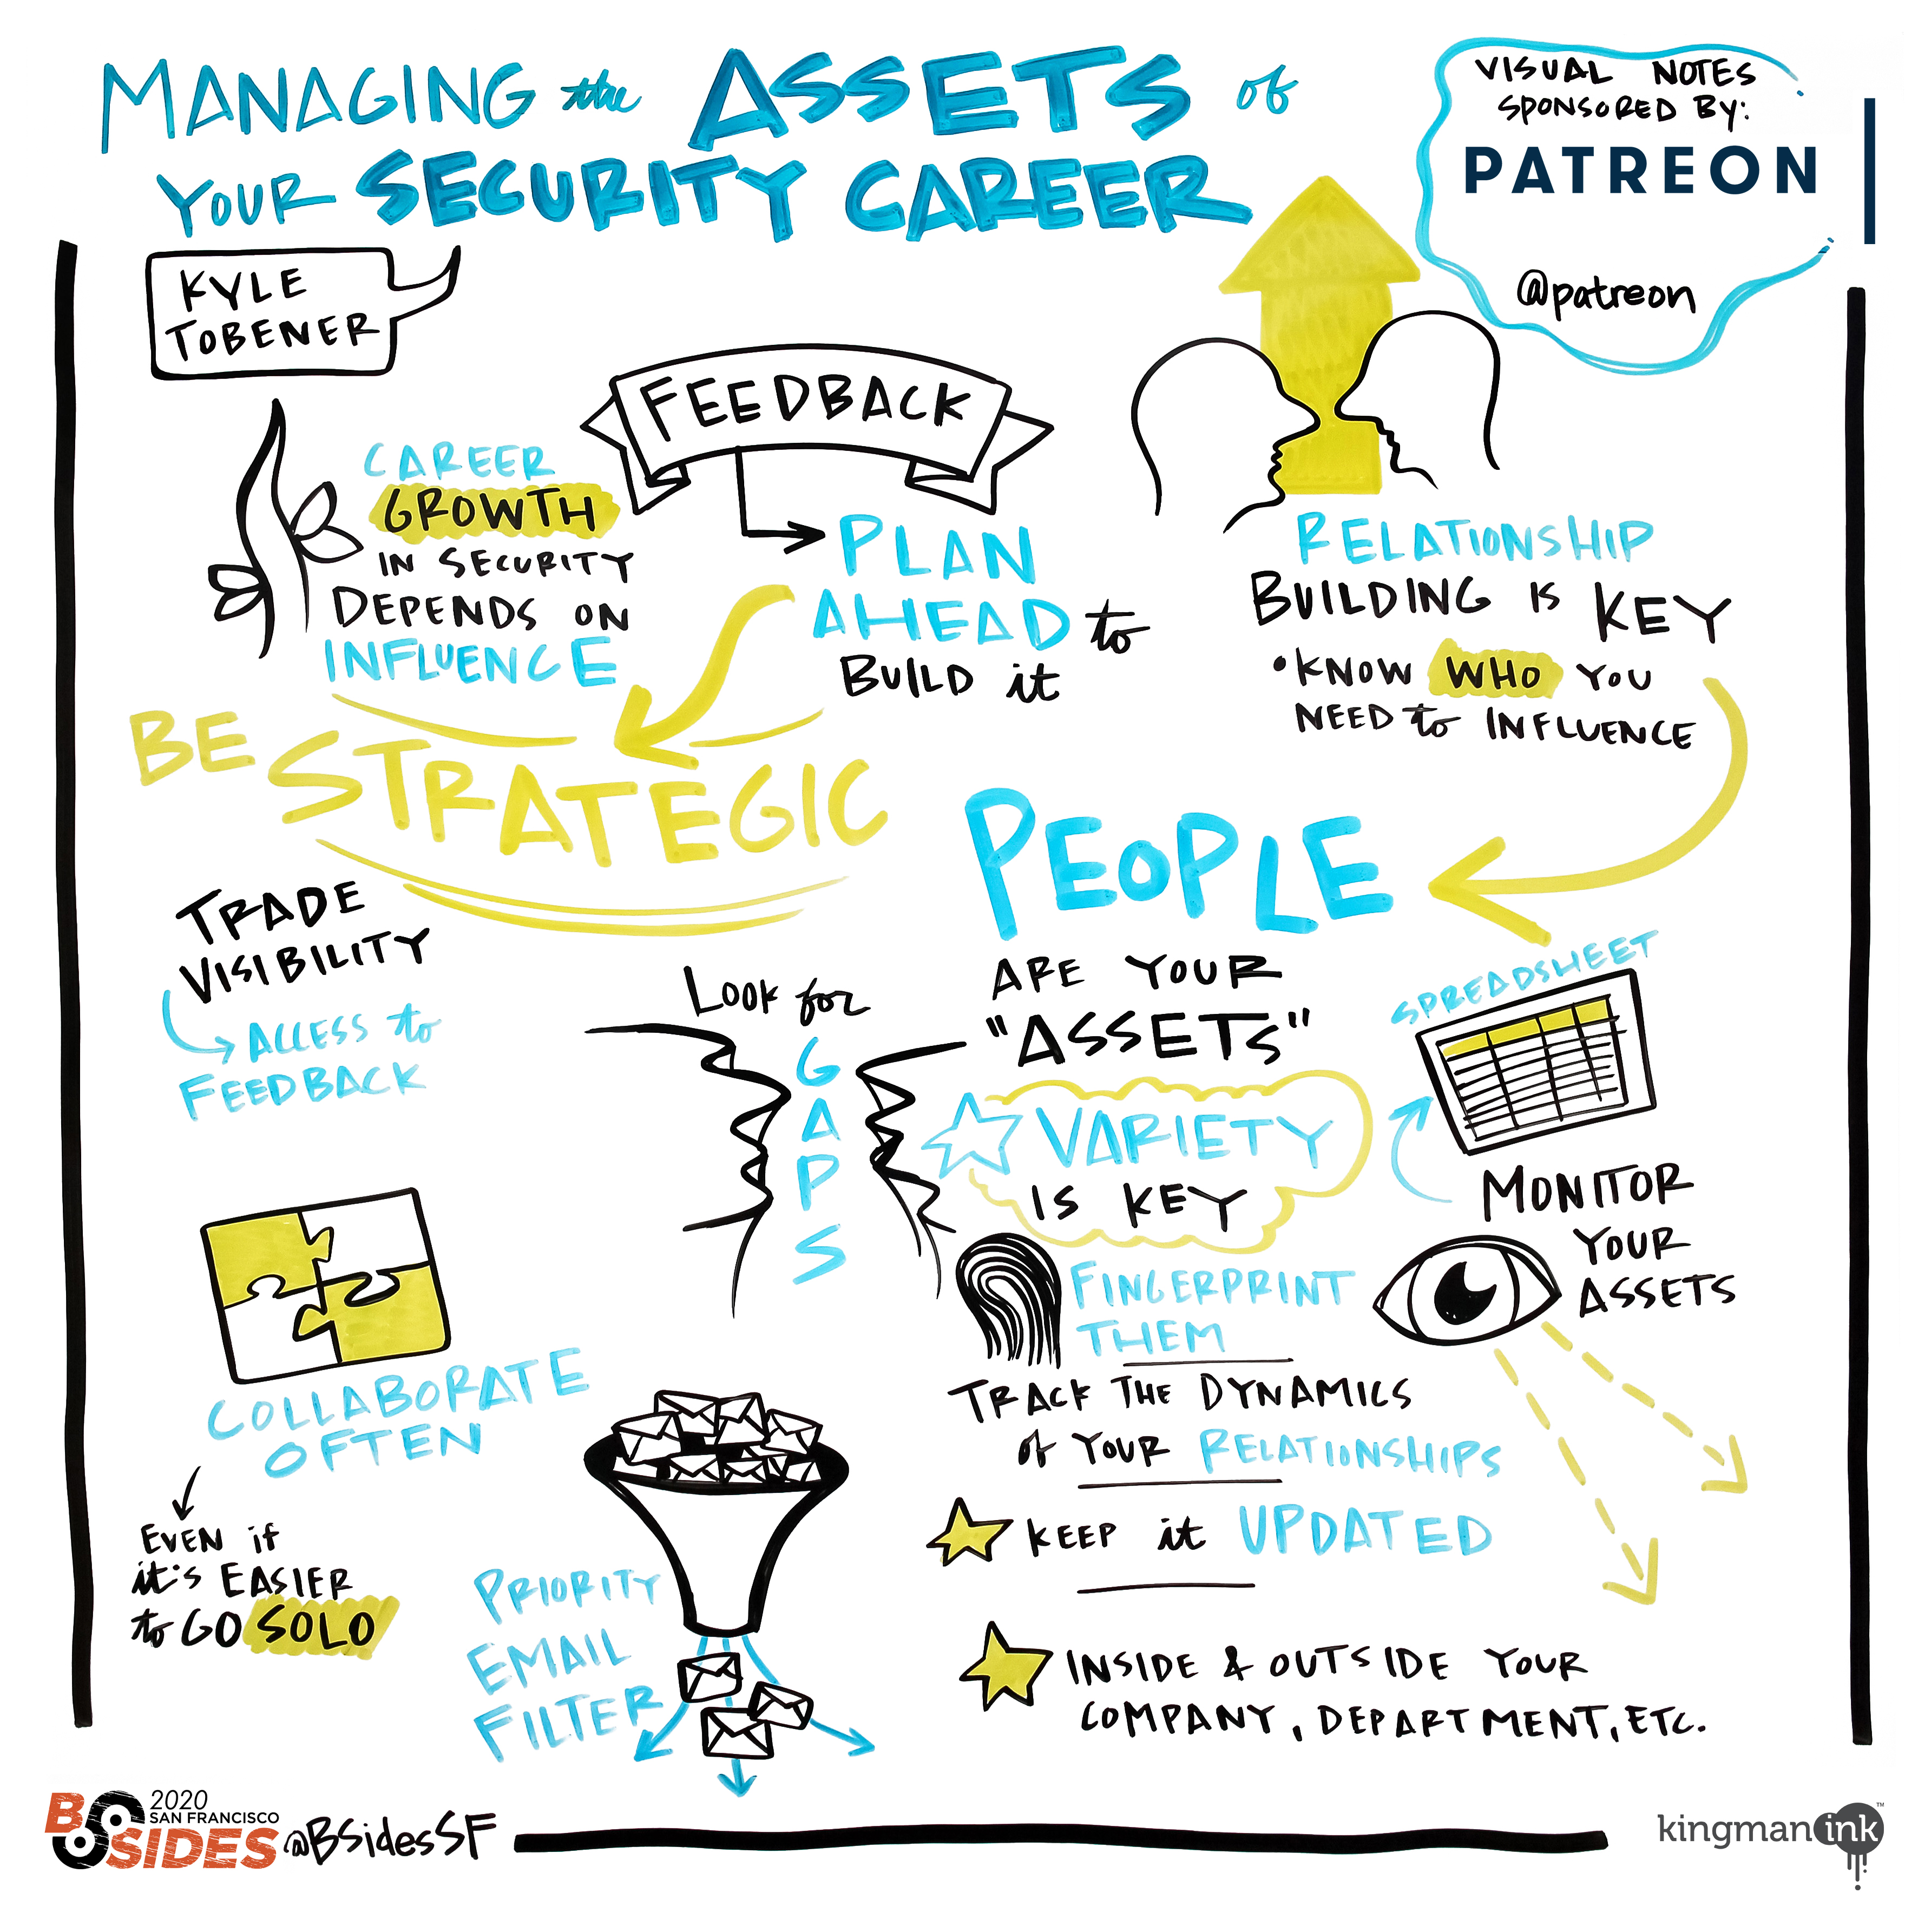 MANAGING the ASSETS of
YOUR SECURITY CAREER
VISUAL NOTES
SPONSORED BY:
PATREON
@patreon
KYLE
TOBENER
FEEDBACK
CAREER
GROWTH
IN SECURITY
DEPENDS ON
INFLUENCE
PLAN
AHEAD to
BUILD it
RELATIONSHIP
BUILDING IS KEY
• KNOW WHO YOU
NEED to INFLUENCE
BE STRATEGIC
TRADE
VISIBILITY
ACCESS to
FEEDBACK
LOOK for
GAPS
PEOPLE
ARE YOUR
"ASSETS"
VARIETY
IS KEY
SPREADSHEET
MONITOR
YOUR
ASSETS
FINGERPRINT
THEM
TRACK THE DYNAMICS
of YOUR RELATIONSHIPS
KEEP it UPDATED
INSIDE & OUTSIDE YOUR
COMPANY, DEPARTMENT, ETC.
COLLABORATE
OFTEN
EVEN if
it's EASIER
to GO SOLO
PRIORITY
EMAIL
FILTER
2020
SAN FRANCISCO
BSIDES
@BSidesSF
kingman ink™